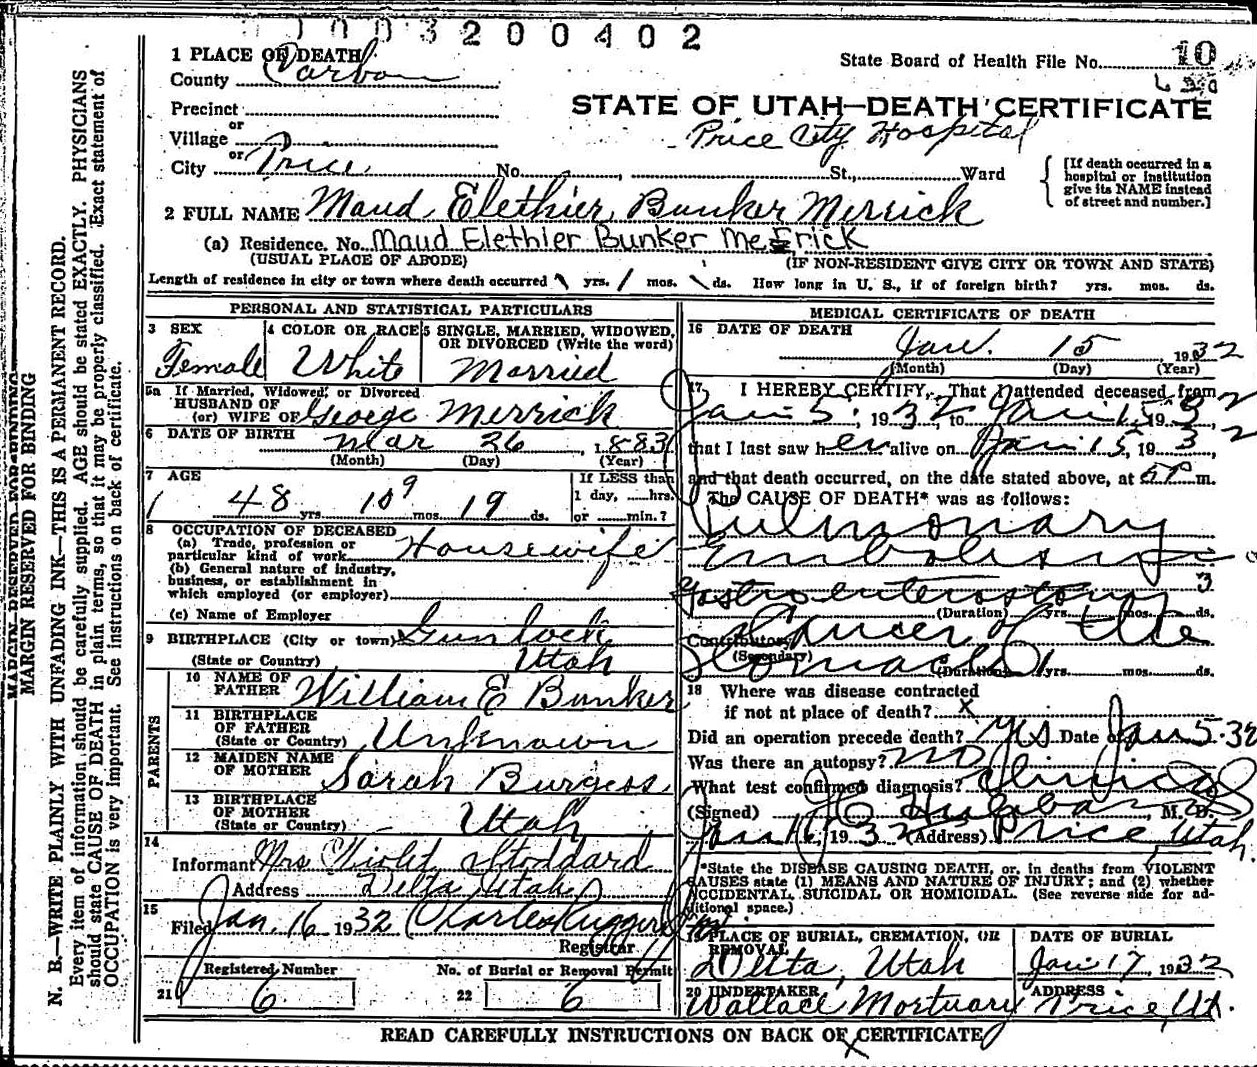 1003200402
1 PLACE OF DEATH
County Carbon
State Board of Health File No. 10
Precinct
or
Village
or
City Price No. St., Ward
STATE OF UTAH—DEATH CERTIFICATE
Price City Hospital
[If death occurred in a
hospital or institution
give its NAME instead
of street and number.]
2 FULL NAME Maud Elethier Bunker Merrick
(a) Residence. No. Maud Elethier Bunker Merrick
(USUAL PLACE OF ABODE) (IF NON-RESIDENT GIVE CITY OR TOWN AND STATE)
Length of residence in city or town where death occurred yrs. 1 mos. ds. How long in U. S., if of foreign birth? yrs. mos. ds.
PERSONAL AND STATISTICAL PARTICULARS
3 SEX
Female
4 COLOR OR RACE
White
5 SINGLE, MARRIED, WIDOWED,
OR DIVORCED (Write the word)
Married
5a If Married, Widowed, or Divorced
HUSBAND OF
(or) WIFE OF George Merrick
6 DATE OF BIRTH Mar 26, 1883
(Month) (Day) (Year)
7 AGE
48 yrs. 10 9 mos. 19 ds.
If LESS than
1 day, hrs.
or min.?
8 OCCUPATION OF DECEASED
(a) Trade, profession or
particular kind of work Housewife
(b) General nature of industry,
business, or establishment in
which employed (or employer)
(c) Name of Employer
9 BIRTHPLACE (City or town) Gunlock
(State or Country) Utah
PARENTS
10 NAME OF
FATHER William E Bunker
11 BIRTHPLACE
OF FATHER
(State or Country) Unknown
12 MAIDEN NAME
OF MOTHER Sarah Burgess
13 BIRTHPLACE
OF MOTHER
(State or Country) Utah
14
Informant Mrs Violet Stoddard
Address Delta Utah
15
Filed Jan. 16 1932 Charles Ruggeri
Registrar
21 Registered Number 6
22 No. of Burial or Removal Permit 6
MEDICAL CERTIFICATE OF DEATH
16 DATE OF DEATH
Jan. 15, 1932
(Month) (Day) (Year)
17 I HEREBY CERTIFY, That I attended deceased from
Jan 5, 1932, to Jan 15 1932
that I last saw her alive on Jan 15, 1932,
and that death occurred, on the date stated above, at 6P m.
The CAUSE OF DEATH* was as follows:
Pulmonary
Embolism
Gastroenterostomy 3
(Duration) yrs. ds.
Contributory Cancer of the
(Secondary)
Stomach (Duration) 1 yrs. mos. ds.
18 Where was disease contracted
if not at place of death? X
Did an operation precede death? Yes Date of Jan 5-32
Was there an autopsy? no
What test confirmed diagnosis? Clinical
(Signed) J C Hubbard, M. D.
Jan 16, 1932 (Address) Price, Utah
*State the DISEASE CAUSING DEATH, or, in deaths from VIOLENT
CAUSES state (1) MEANS AND NATURE OF INJURY; and (2) whether
ACCIDENTAL, SUICIDAL OR HOMICIDAL. (See reverse side for ad-
ditional space.)
19 PLACE OF BURIAL, CREMATION, OR
REMOVAL
Delta, Utah
DATE OF BURIAL
Jan 17, 1932
20 UNDERTAKER
Wallace Mortuary
ADDRESS
Price, Ut.
READ CAREFULLY INSTRUCTIONS ON BACK OF CERTIFICATE
MARGIN RESERVED FOR BINDING
MARGIN RESERVED FOR BINDING
N. B.—WRITE PLAINLY WITH UNFADING INK—THIS IS A PERMANENT RECORD.
Every item of information should be carefully supplied. AGE should be stated EXACTLY. PHYSICIANS
should state CAUSE OF DEATH in plain terms, so that it may be properly classified. Exact statement of
OCCUPATION is very important. See instructions on back of certificate.